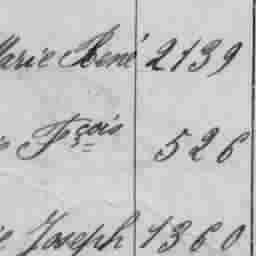 Marie René 2139
Fçois 526
Joseph 1360